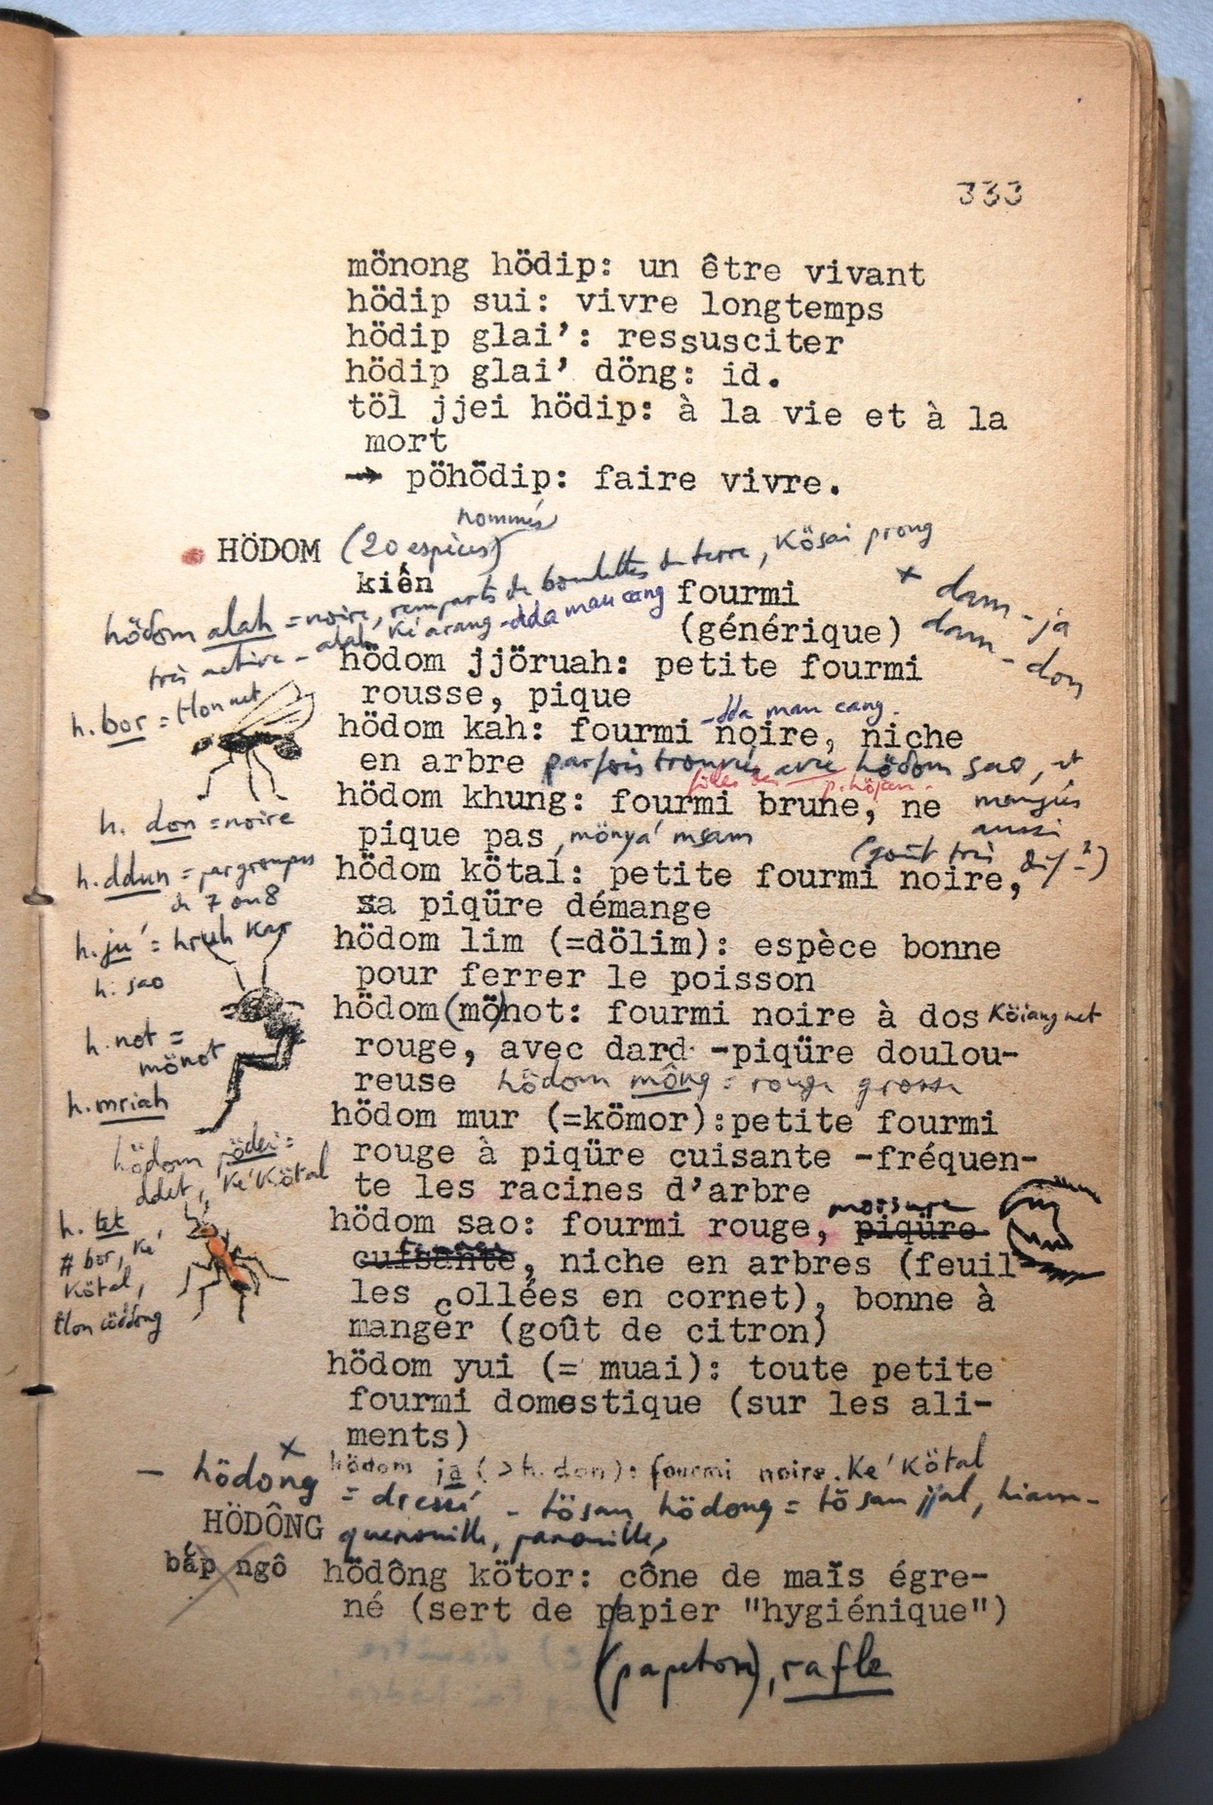 333
mönong hödip: un être vivant
hödip sui: vivre longtemps
hödip glai': ressusciter
hödip glai' döng: id.
töl jjei hödip: à la vie et à la
mort
→ pöhödip: faire vivre.
nommés
HÖDOM (20 espèces)
kiến
hödom alah = noire, remparts de boulettes de terre, Kösai prong
très active - alah Ke' arang - dda mau cang
fourmi
(générique)
+ dam-ja
dam-don
hödom jjöruah: petite fourmi
rousse, pique
h. bor = tlon net
- dda mau cang.
hödom kah: fourmi noire, niche
en arbre parfois trouvée avec hödom sao, et
mangés
aussi
hödom khung: fourmi brune, ne
pique pas, mönya' msam
(goût très
h. don = noire
h. ddun = par groupes
de 7 ou 8
hödom kötal: petite fourmi noire,
sa piqüre démange
h. ju' = hruh kar
h. sao
hödom lim (=dölim): espèce bonne
pour ferrer le poisson
h. not =
mönot
hödom (mö)not: fourmi noire à dos Köiang net
rouge, avec dard -piqüre doulou-
reuse hödom mông = rouge grosse
h. mriah
hödom mur (=kömor):petite fourmi
rouge à piqüre cuisante -fréquen-
te les racines d'arbre
hödom pödei =
ddet, Ke' Kötal
h. tet
# bor, Ke'
Kötal,
tlon cöddong
morsure
hödom sao: fourmi rouge, piqüre
cuisante, niche en arbres (feuil-
les collées en cornet), bonne à
manger (goût de citron)
hödom yui (= muai): toute petite
fourmi domestique (sur les ali-
ments)
hödom ja (> h. don): fourmi noire. Ke' Kötal
- hödong = dressé - tösan hödong = tösan jjal, hiam-
HÖDÔNG quenouille, panouille,
bắp ngô
hödông kötor: cône de maïs égre-
né (sert de papier "hygiénique")
(papeton), rafle